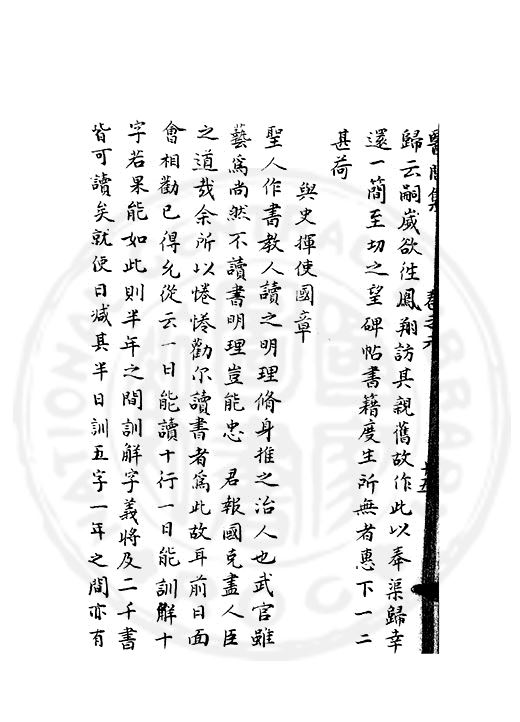 醫閭集 卷之六 十五
歸云嗣歲欲徃鳳翔訪其親舊故作此以奉渠歸幸
還一簡至切之望碑帖書籍度生所無者惠下一二
甚荷
與史揮使國章
聖人作書教人讀之明理脩身推之治人也武官雖
藝爲尚然不讀書明理豈能忠 君報國克盡人臣
之道哉余所以惓惓勸尔讀書者爲此故耳前日面
會相勸已得允從云一日能讀十行一日能訓解十
字若果能如此則半年之間訓解字義將及二千書
皆可讀矣就使日减其半日訓五字一年之間亦有